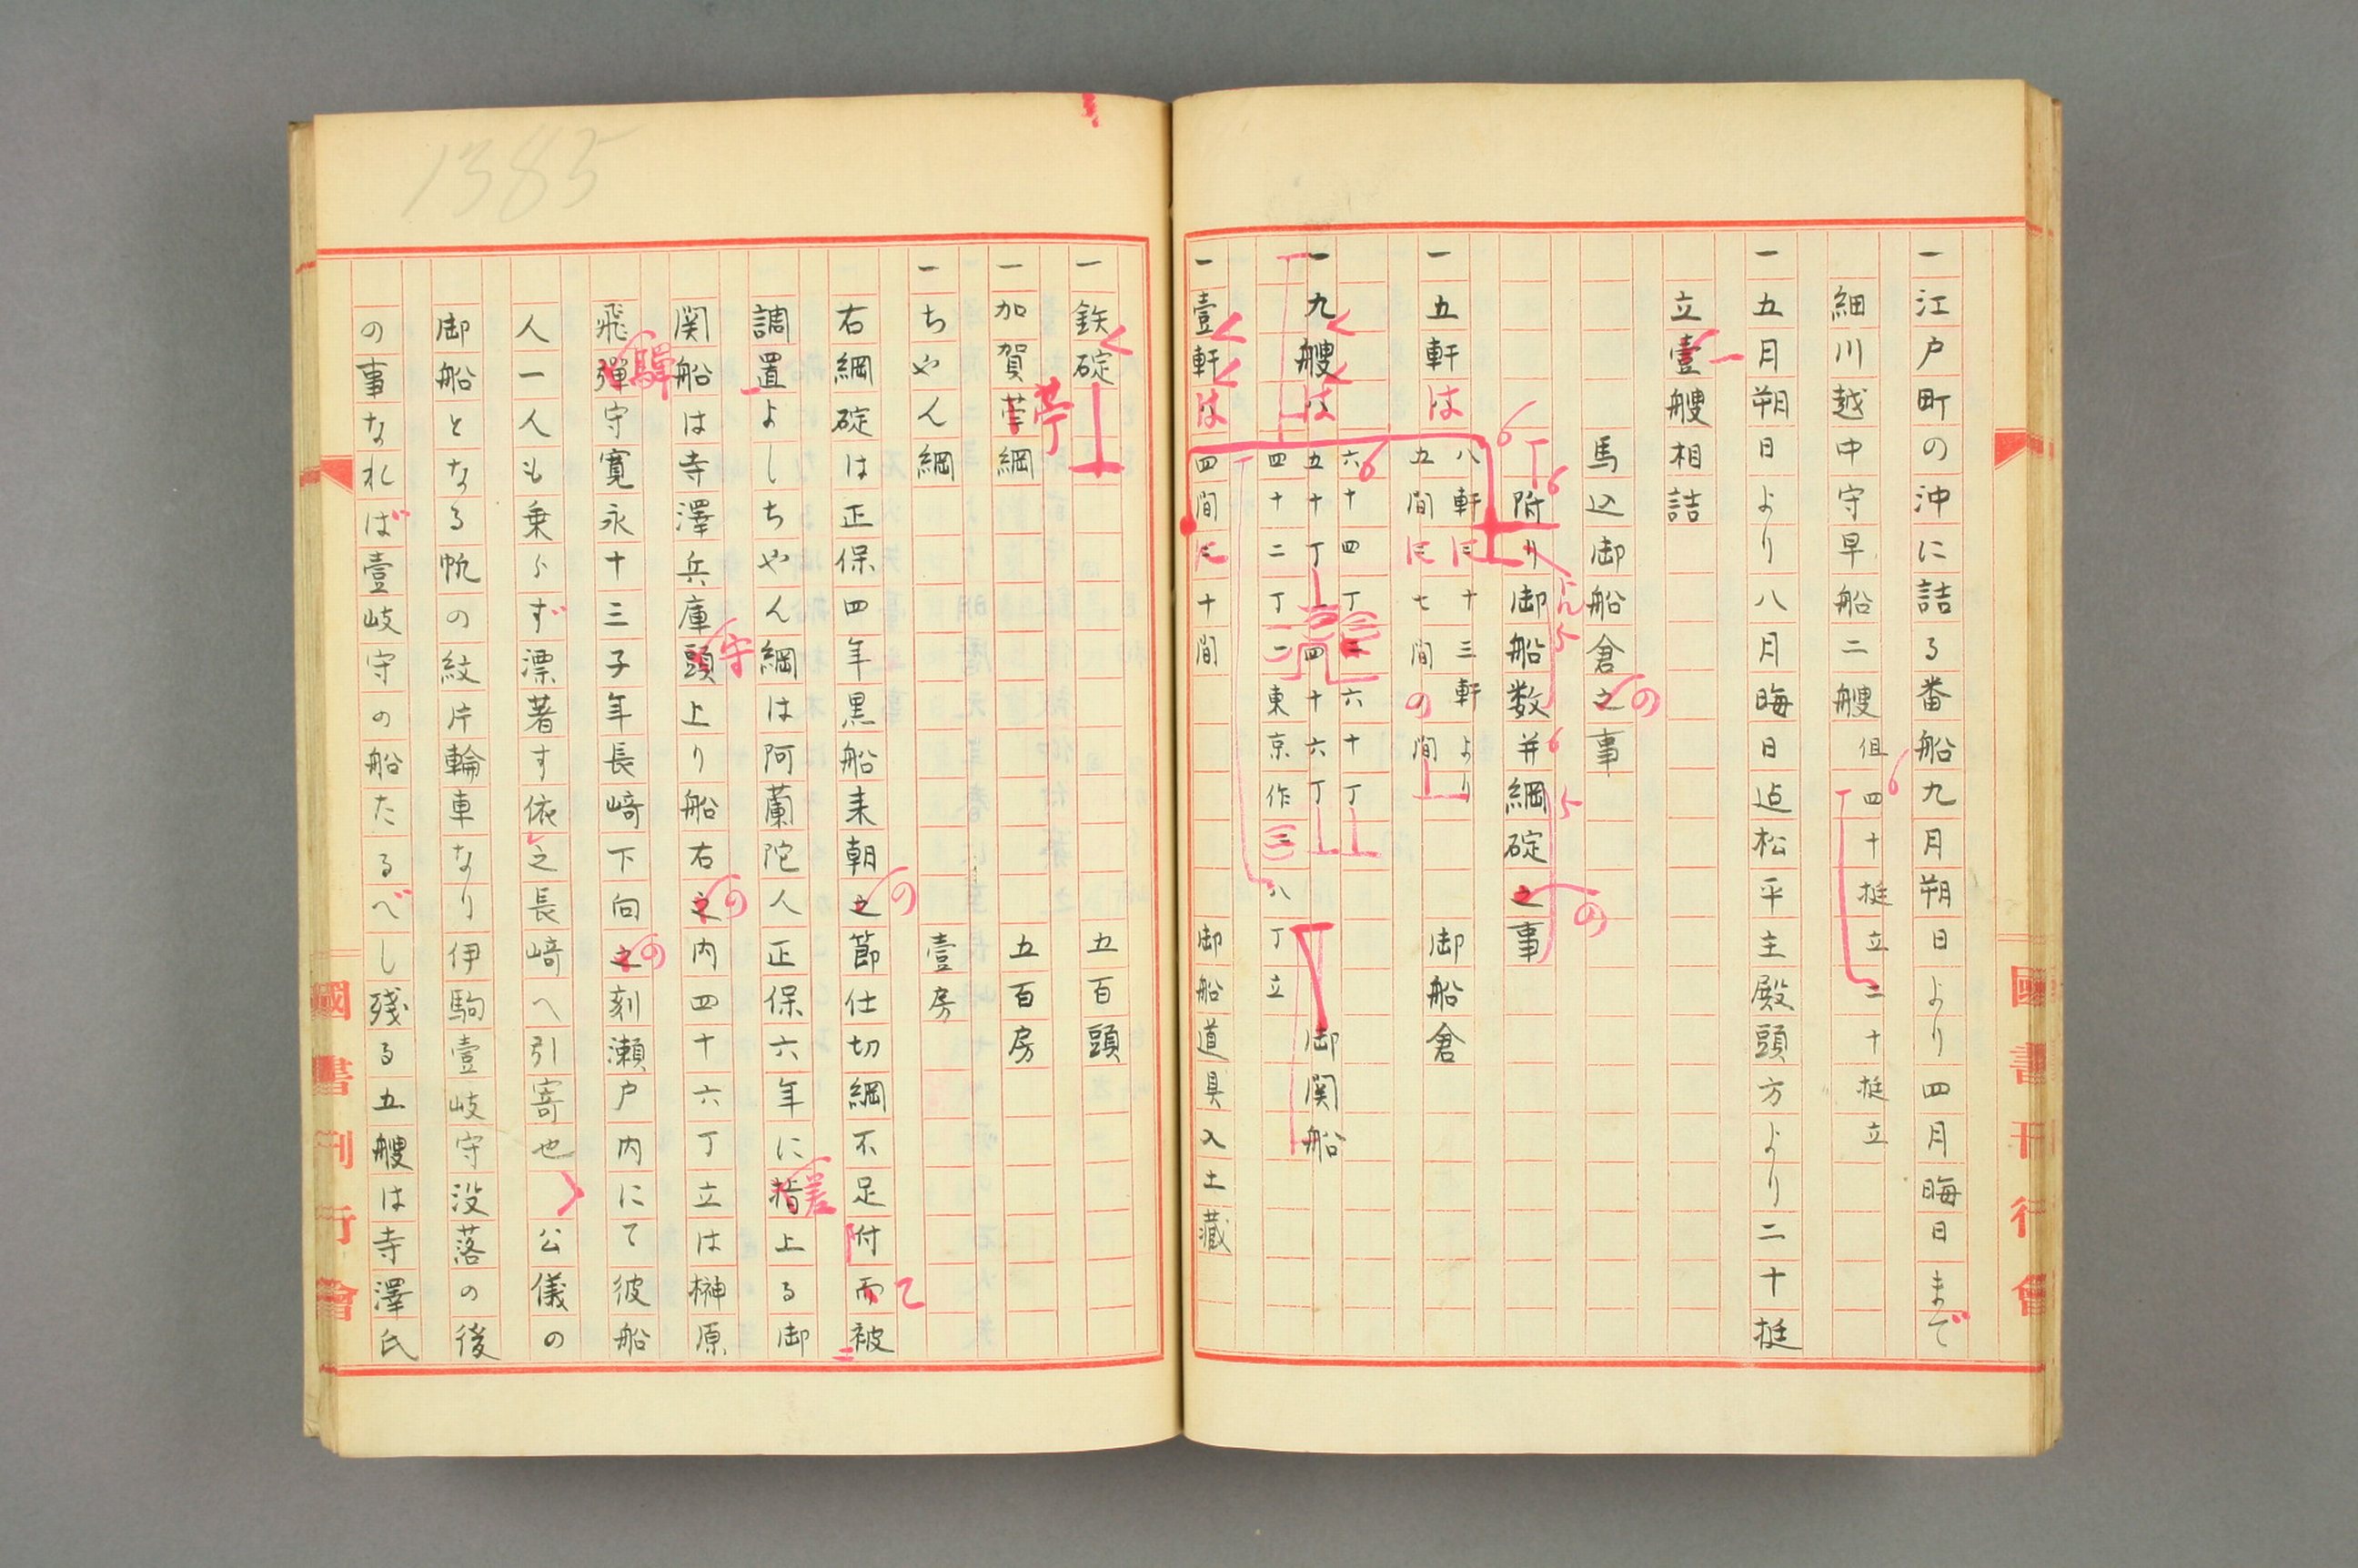 一江戸町の沖に詰る番船九月朔日より四月晦日まで
細川越中守早船二艘但四十挺立二十挺立
一五月朔日より八月晦日迠松平主殿頭方より二十挺
立壹艘相詰
一
馬込御船倉之事
の
附り御船数并綱碇之事
の
一五軒は
八軒に十三軒より
五間に七間の間
御船倉
一九艘は
六十四丁二六十丁
五十丁一四十六丁
四十二丁一東京作三八丁立
御関船
一壹軒は四間に十間御船道具入土藏
國書刊行會
1385
一鉄碇五百頭
一加賀苧綱五百房
苧
一ちやん綱壹房
右綱碇は正保四年黒船来朝之節仕切綱不足附而被
の
て
調置よしちやん綱は阿蘭陀人正保六年に揩上る御
差
関船は寺澤兵庫頭上り船右之内四十六丁立は榊原
守
の
飛彈守寛永十三子年長﨑下向之刻瀬戸内にて彼船
驒
の
人一人も乗らず漂著す依之長﨑へ引寄也公儀の
御船となる帆の紋片輪車なり伊駒壹岐守没落の後
の事なれば壹岐守の船たるべし殘る五艘は寺澤氏
國書刊行會